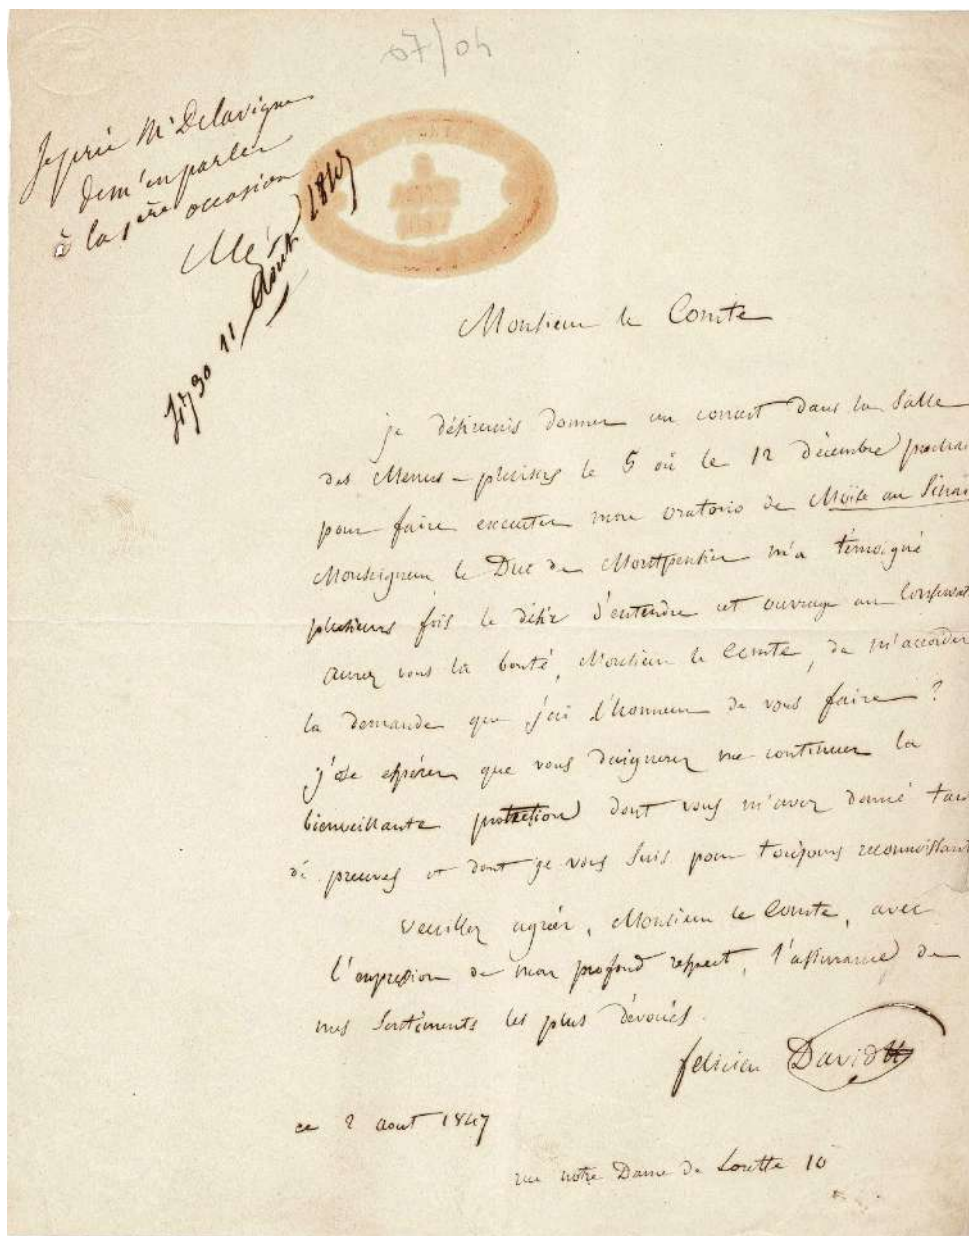 07/04
Je prie Mr Delavigne
de m'en parler
à la 1ère occasion
11 Août 1847
Monsieur le Comte
je désirerais donner un concert dans la Salle
des Menus-plaisirs le 5 où le 12 décembre prochai
pour faire executer mon oratorio de Moïse au Sinaï
Monseigneur le Duc de Montpensier m'a témoigné
plusieurs fois le désir d'entendre cet ouvrage au Conservat
aurez vous la bonté, Monsieur le Comte, de m'accorder
la demande que j'ai l'honneur de vous faire ?
j'ose espérer que vous daignerez me continuer la
bienveillante protection dont vous m'avez donné tan
de preuves et dont je vous suis pour toujours reconnaissant
veuillez agréer, Monsieur le Comte, avec
l'expression de mon profond respect, l'assurance de
mes sentiments les plus dévoués.
felicien David
ce 2 aout 1847
rue notre Dame de Lorette 10